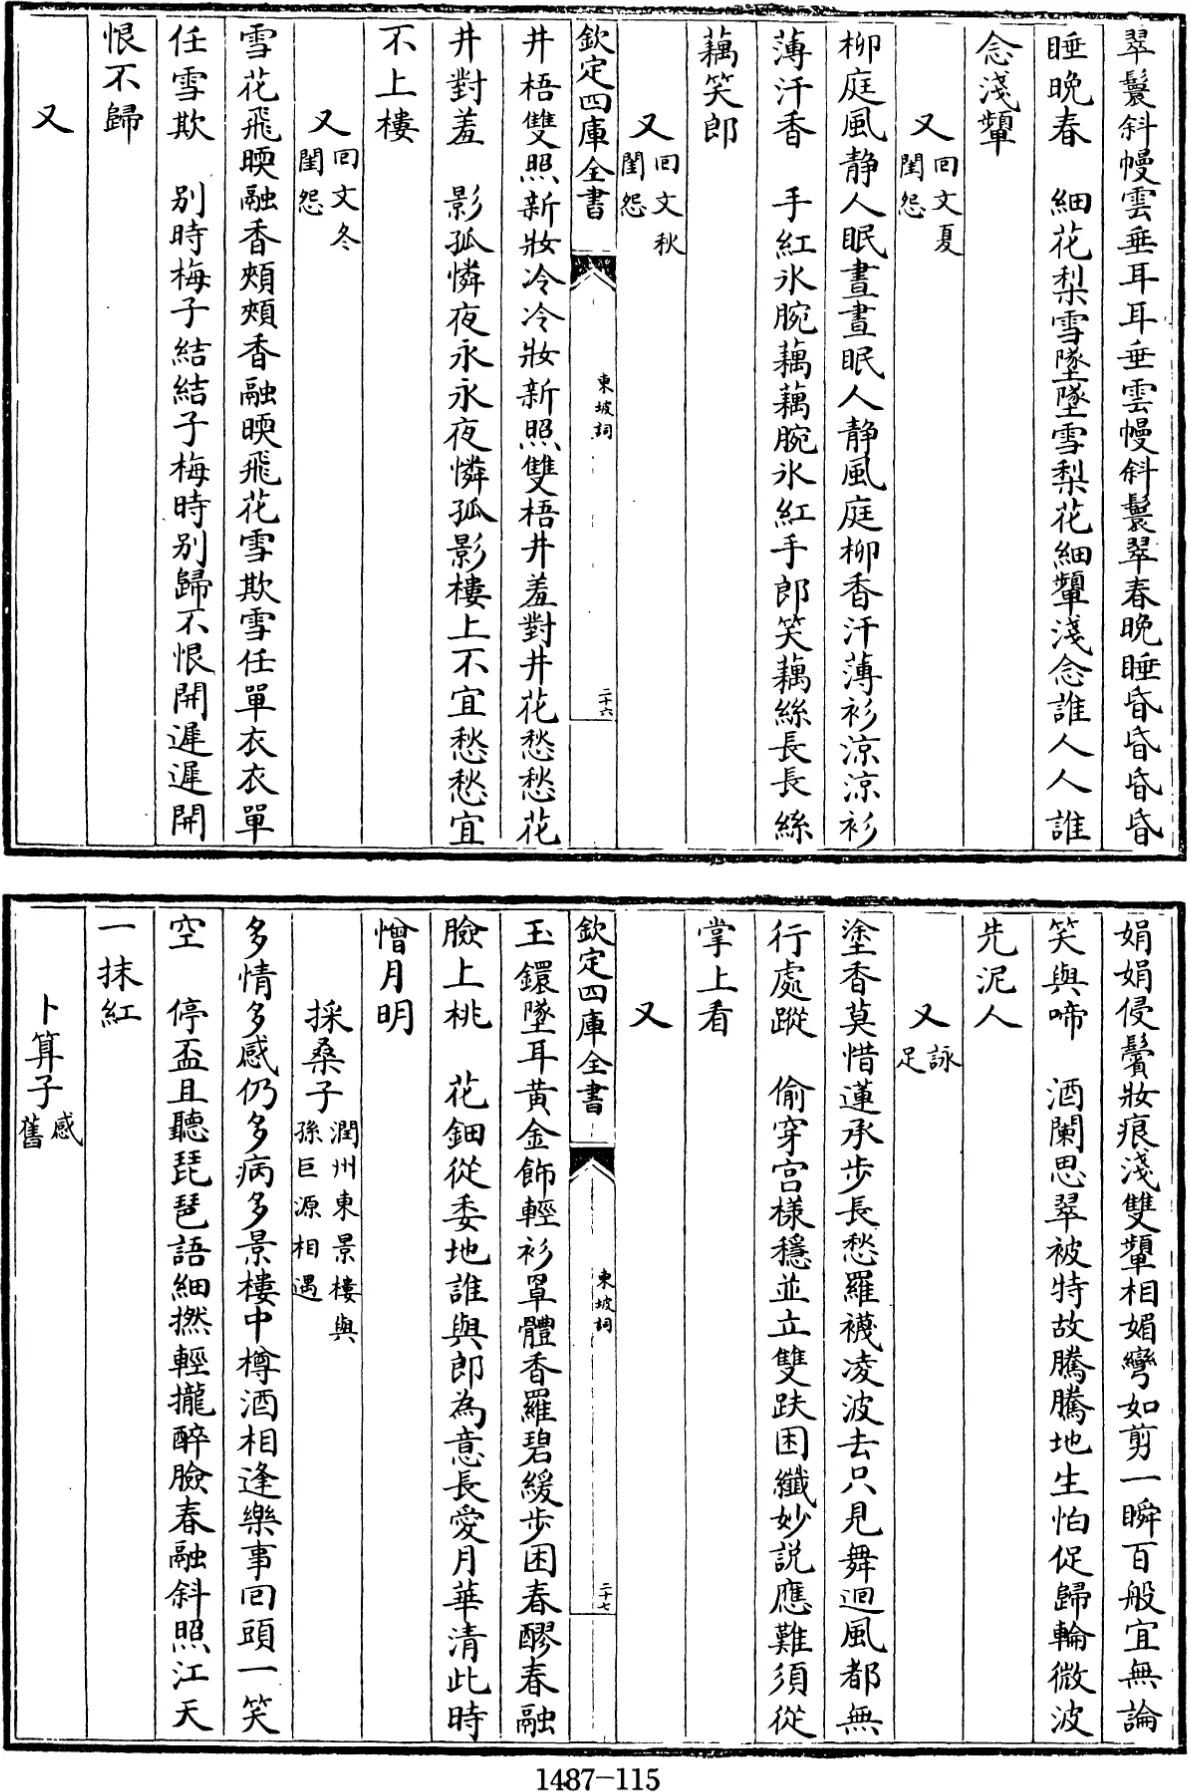 翠鬟斜幔雲垂耳耳垂雲幔斜鬟翠春晩睡昏昏昏昏
睡晩春　細花梨雪墜墜雪梨花細顰淺念誰人人誰
念淺顰
又回文夏閨怨
柳庭風静人眠晝晝眠人静風庭柳香汗薄衫凉凉衫
薄汗香　手紅氷腕藕藕腕氷紅手郎笑藕絲長長絲
藕笑郎
又回文秋閨怨
欽定四庫全書　東坡詞　二十六
井梧雙照新妝冷冷妝新照雙梧井羞對井花愁愁花
井對羞　影孤憐夜永永夜憐孤影樓上不宜愁愁宜
不上樓
又回文冬閨怨
雪花飛暎融香頰頰香融暎飛花雪欺雪任單衣衣單
任雪欺　別時梅子結結子梅時別歸不恨開遲遲開
恨不歸
又
娟娟侵鬢妝痕淺雙顰相媚彎如剪一瞬百般宜無論
笑與啼　酒闌思翠被特故騰騰地生怕促歸輪微波
先泥人
又詠足
塗香莫惜蓮承步長愁羅襪凌波去只見舞迴風都無
行處蹤　偷穿宫様穩並立雙趺困纖妙説應難須從
掌上看
又
欽定四庫全書　東坡詞　二十七
玉鐶墜耳黄金飾輕衫罩體香羅碧緩步困春醪春融
臉上桃　花鈿從委地誰與郎為意長愛月華清此時
憎月明
採桑子潤州東景樓與孫巨源相遇
多情多感仍多病多景樓中樽酒相逢樂事回頭一笑
空　停盃且聽琵琶語細撚輕攏醉臉春融斜照江天
一抹紅
卜算子感舊
1487–115